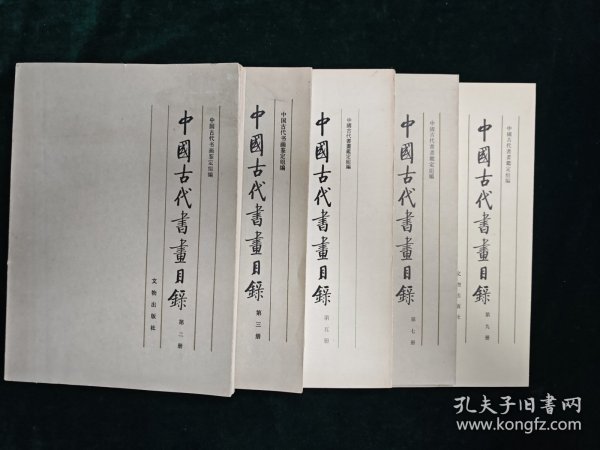 中国古代书画鉴定组编
中國古代書畫目錄
第二册
文物出版社
中国古代书画鉴定组编
中國古代書畫目錄
第三册
中國古代書畫鑑定組編
中國古代書畫目錄
第五册
中國古代書畫鑑定組編
中國古代書畫目錄
第七册
文物出版社
中國古代書畫鑑定組編
中國古代書畫目錄
第九册
孔夫子旧书网
www.kongfz.com